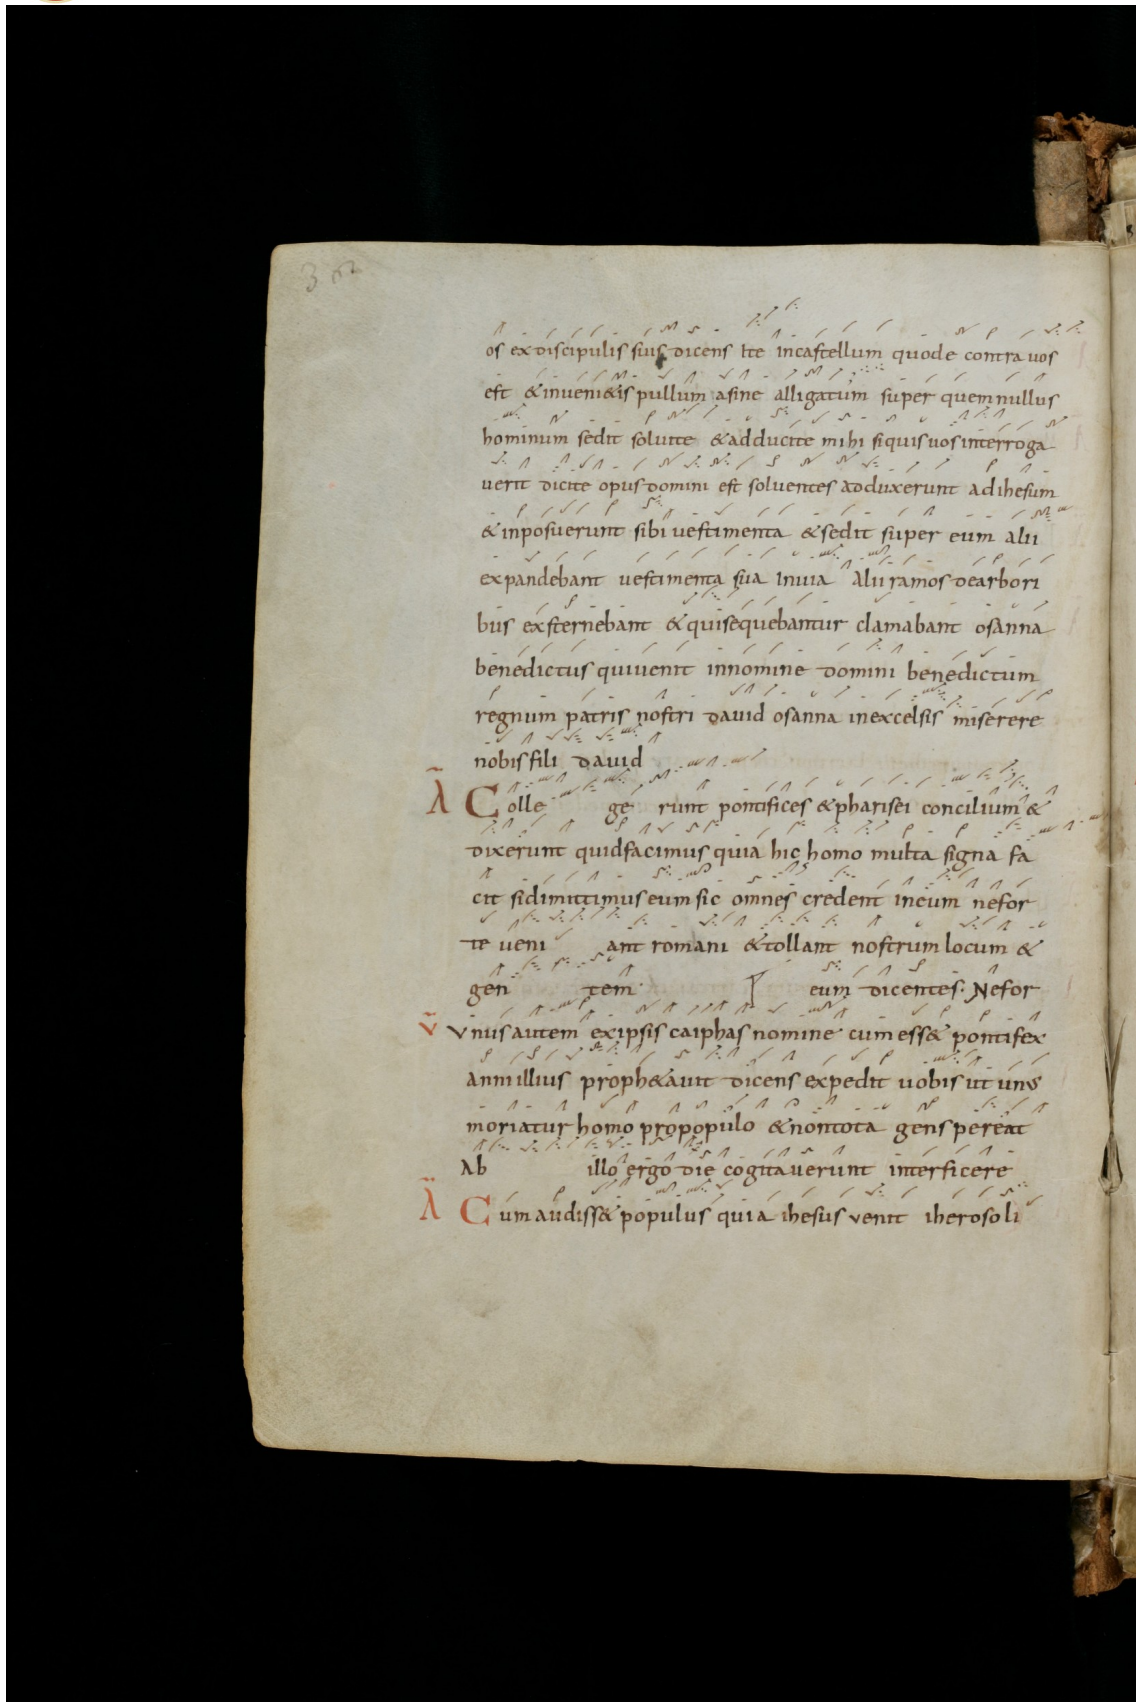 os ex discipulis suis dicens Ite in castellum quod e contra vos
est & inveni&is pullum asine alligatum super quem nullus
hominum sedit solvite & adducite mihi si quis vos interroga
verit dicite opus domini est solventes adduxerunt ad ihesum
& inposuerunt sibi vestimenta & sedit super eum alii
expandebant vestimenta sua in via alii ramos de arbori
bus exsternebant & qui sequebantur clamabant osanna
benedictus qui venit in nomine domini benedictum
regnum patris nostri david osanna in excelsis miserere
nobis fili david
A Colle ge runt pontifices & pharisei concilium &
dixerunt quid facimus quia hic homo multa signa fa
cit si dimittimus eum sic omnes credent in eum ne for
te veni ant romani & tollant nostrum locum &
gen tem eum dicentes. Ne for
V Vnus autem ex ipsis caiphas nomine cum ess& pontifex
anni illius proph&avit dicens expedit vobis ut unus
moriatur homo pro populo & non tota gens pereat
Ab illo ergo die cogitaverunt interficere
A Cum audiss& populus quia ihesus venit iherosoli